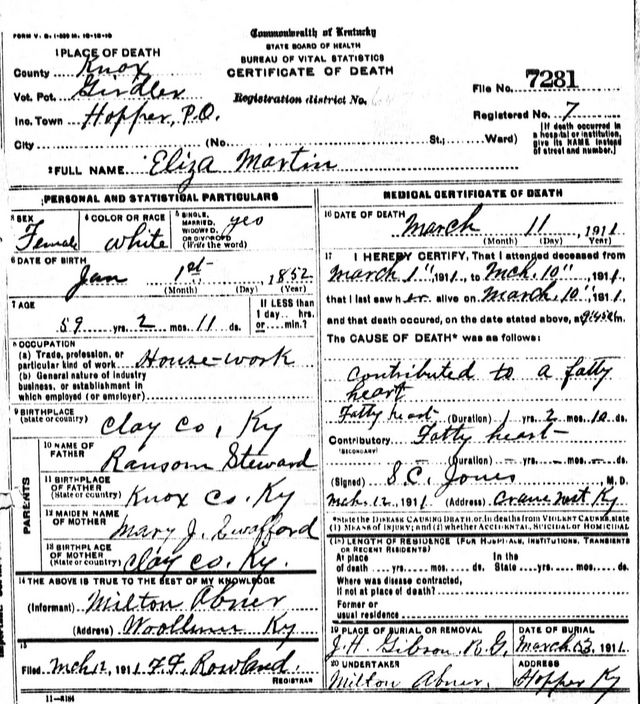 FORM V. S. 1-
Commonwealth of Kentucky
STATE BOARD OF HEALTH
BUREAU OF VITAL STATISTICS
CERTIFICATE OF DEATH
1 PLACE OF DEATH
County Knox
Vot. Pct. Girdler
Inc. Town Hopper, P.O.
City (No. St.; Ward)
Registration district No.
File No. 7281
Registered No. 7
[If death occurred in a hospital or institution, give its NAME instead of street and number.]
2 FULL NAME Eliza Martin
PERSONAL AND STATISTICAL PARTICULARS
3 SEX Female
4 COLOR OR RACE white
5 SINGLE, MARRIED, WIDOWED OR DIVORCED (Write the word) yes
6 DATE OF BIRTH
Jan 1st 1852
(Month) (Day) (Year)
7 AGE
59 yrs. 2 mos. 11 ds.
If LESS than 1 day hrs. or min.?
8 OCCUPATION
(a) Trade, profession, or particular kind of work House-work
(b) General nature of industry business, or establishment in which employed (or employer)
9 BIRTHPLACE
(State or country) Clay Co, Ky
PARENTS
10 NAME OF FATHER Ransom Steward
11 BIRTHPLACE OF FATHER (State or country) Knox Co. Ky
12 MAIDEN NAME OF MOTHER Mary J. Swafford
13 BIRTHPLACE OF MOTHER (State or country) Clay Co. Ky.
14 THE ABOVE IS TRUE TO THE BEST OF MY KNOWLEDGE
(Informant) Milton Abner
(Address) Woollum Ky
15
Filed Mch 12, 1911 F.F. Rowland.
REGISTRAR
11-3184
MEDICAL CERTIFICATE OF DEATH
16 DATE OF DEATH March 11 1911
(Month) (Day) (Year)
17 I HEREBY CERTIFY, That I attended deceased from
March 1" 1911, to Mch. 10" 1911,
that I last saw her alive on March. 10" 1911,
and that death occured, on the date stated above, at
The CAUSE OF DEATH* was as follows:
Contributed to a fatty
heart
Fatty heart (Duration) 1 yrs. 2 mos. 10 ds.
Contributory Fatty heart
(SECONDARY)
(Duration) – yrs. – mos. – ds.
(Signed) S.C. Jones, M. D.
Mch. 12, 1911 (Address) Crane Nest Ky
*State the DISEASE CAUSING DEATH or, in deaths from VIOLENT CAUSES, state (1) MEANS OF INJURY; and (2) whether ACCIDENTAL, SUICIDAL or HOMICIDAL
18 LENGTH OF RESIDENCE (FOR HOSPITALS, INSTITUTIONS, TRANSIENTS OR RECENT RESIDENTS)
At place of death yrs. mos. ds. In the State yrs. mos. ds.
Where was disease contracted,
if not at place of death?
Former or
usual residence
19 PLACE OF BURIAL OR REMOVAL J.H. Gibson
DATE OF BURIAL March 13, 1911
20 UNDERTAKER Milton Abner,
ADDRESS Hopper Ky